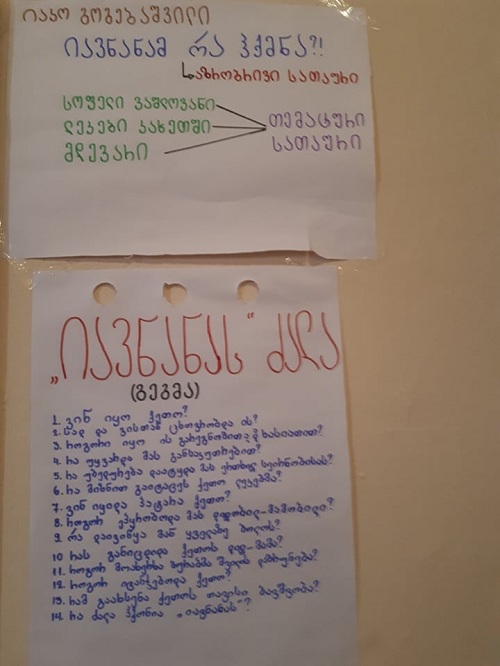 იაკო გოგებაშვილი
იავნანამ რა ჰქმნა?!
აზრობრივი სათაური
სოფელი ვაშლოვანი
ლეკები კახეთში
თემატური
მდევარი
სათაური
„იავნანას“ ძალა
(გეგმა)
1. ვინ იყო ქეთო?
2. სად და ვისთან ცხოვრობდა ის?
3. როგორი იყო ის გარეგნობით და ხასიათით?
4. რა უყვარდა მას განსაკუთრებით?
5. რა უბედურება დაატყდა მას ერთხელ სეირნობისას?
6. რა მიზნით გაიტაცეს ქეთო ლეკებმა?
7. ვინ იყიდა პატარა ქეთო?
8. როგორ ეპყრობოდა მას დედობილ-მამობილი?
9. რა დაივიწყა მან ყველაზე ბოლოს?
10 რას განიცდიდა ქეთოს დედ-მამა?
11. როგორ მოახერხა ზურაბმა შვილის დაბრუნება?
12. როგორ იცანეს ქეთო?
13. რამ გაახსენა ქეთოს თავისი ბავშვობა?
14. რა ძალა ჰქონია „იავნანას“?